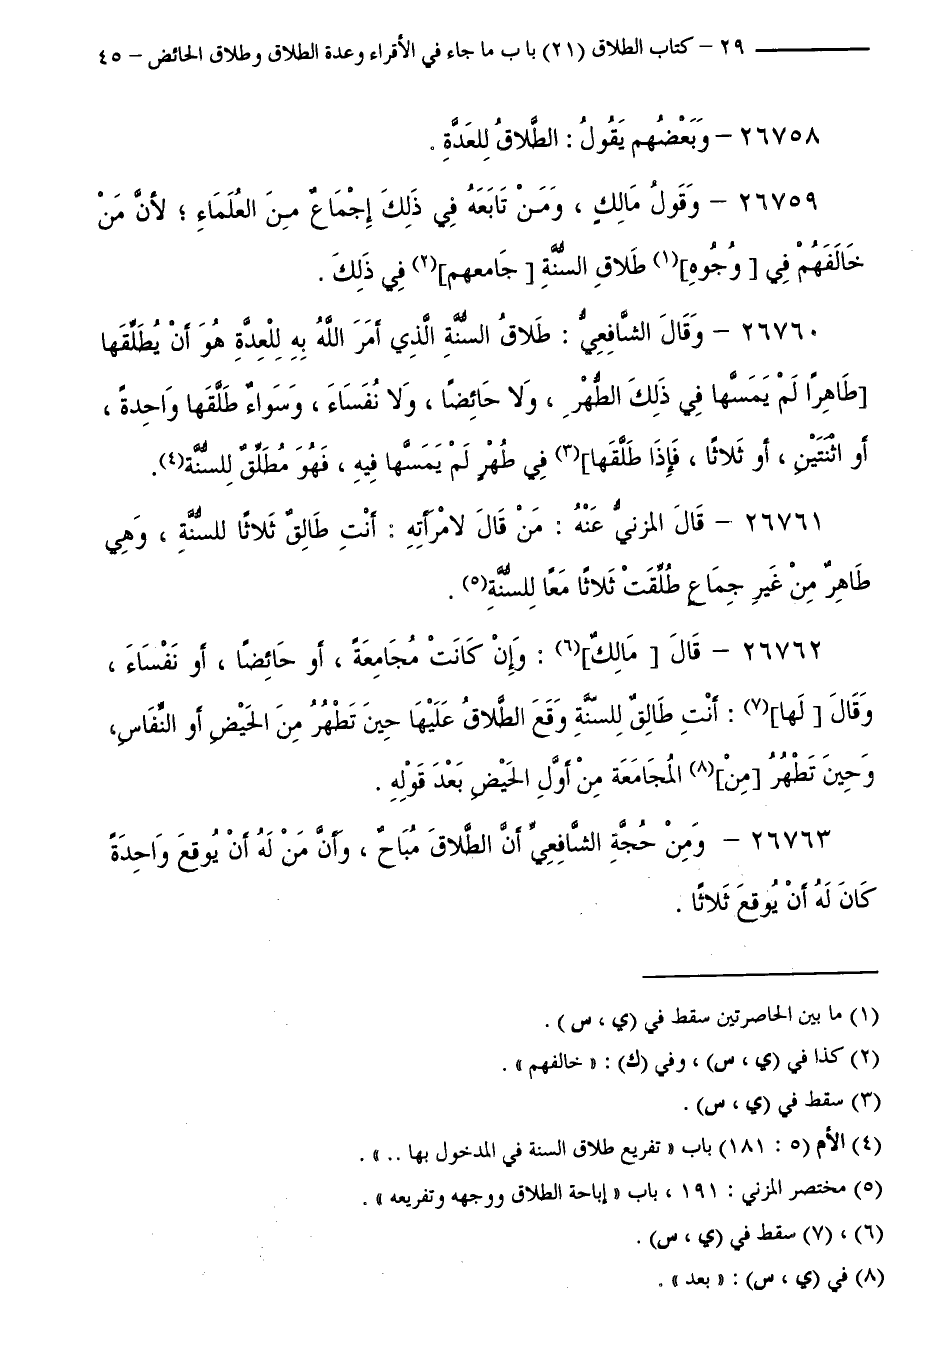 ٢٩ – كتاب الطلاق (٢١) باب ما جاء في الأقراء وعدة الطلاق وطلاق الحائض – ٤٥
٢٦٧٥٨ – وَبَعْضُهم يَقُولُ : الطَّلاقُ لِلعَدَّةِ .
٢٦٧٥٩ – وَقَولُ مَالِكٍ ، وَمَنْ تَابَعَهُ فِي ذَلِكَ إِجْمَاعٌ مِنَ العُلَمَاءِ ؛ لأنَّ مَنْ
خَالَفَهُمْ فِي [ وُجُوهِ](١) طَلاقِ السُّنَّةِ [ جَامعهم](٢) فِي ذَلِكَ .
٢٦٧٦٠ – وَقَالَ الشَّافِعِيُّ : طَلاقُ السُّنَّةِ الَّذِي أَمَرَ اللَّهُ بِهِ لِلْعِدَّةِ هُوَ أَنْ يُطَلِّقَها
[طَاهِرًا لَمْ يَمَسَّها فِي ذَلِكَ الطُّهْرِ ، وَلا حَائِضًا ، وَلا نُفَسَاءَ ، وَسَواءٌ طَلَّقَها وَاحِدةً ،
أو اثْنَتَيْنِ ، أو ثَلاثًا ، فَإِذَا طَلَّقَها](٣) فِي طُهْرٍ لَمْ يَمَسَّها فِيهِ ، فَهُوَ مُطَلِّقٌ لِلسُّنَّةِ(٤).
٢٦٧٦١ – قَالَ المزنيُّ عَنْهُ : مَنْ قَالَ لامْرَأَتِهِ : أَنْتِ طَالِقٌ ثَلاثًا للسُّنَّةِ ، وَهِي
طَاهِرٌ مِنْ غَيرِ جِمَاعٍ طُلِّقَتْ ثَلاثًا مَعًا لِلسُّنَّةِ(٥) .
٢٦٧٦٢ – قَالَ [ مَالِكٌ](٦) : وَإِنْ كَانَتْ مُجَامِعَةً ، أو حَائِضًا ، أو نَفْسَاءَ ،
وَقَالَ [ لَها](٧) : أَنْتِ طَالِقٌ لِلسّنَّةِ وَقَعَ الطَّلاقُ عَلَيْهَا حِينَ تَطْهُرُ مِنَ الحَيْضِ أو النِّفَاسِ،
وَحِينَ تَطْهُرُ [مِنْ](٨) المُجَامَعَة مِنْ أَوَّلِ الحَيْضِ بَعْدَ قَوْلِهِ .
٢٦٧٦٣ – وَمِنْ حُجَّةِ الشَّافِعِيِّ أَنَّ الطَّلاقَ مُبَاحٌ ، وَأَنَّ مَنْ لَهُ أَنْ يُوقعَ وَاحِدَةً
كَانَ لَهُ أَنْ يُوقعَ ثَلاثًا .
(١) ما بين الحاصرتين سقط في (ي ، س ) .
(٢) كذا في (ي ، س) ، وفي (ك) : « خالفهم » .
(٣) سقط في (ي ، س) .
(٤) الأم (٥ : ١٨١) باب « تفريع طلاق السنة في المدخول بها .. » .
(٥) مختصر المزني : ١٩١ ، باب « إباحة الطلاق ووجهه وتفريعه » .
(٦) ، (٧) سقط في (ي ، س) .
(٨) في (ي ، س) : « بعد » .